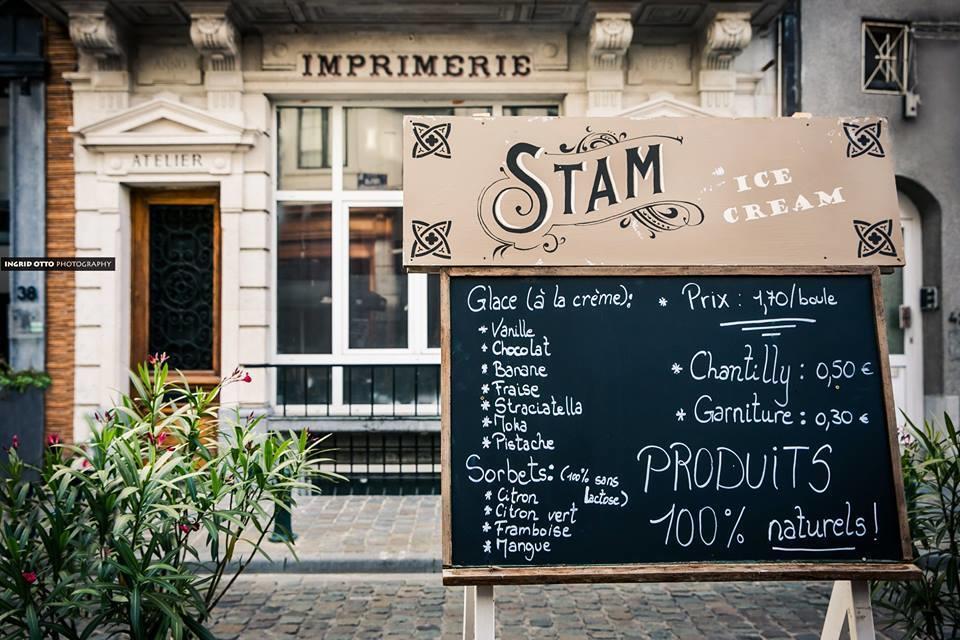 IMPRIMERIE
ATELIER
INGRID OTTO PHOTOGRAPHY
38
STAM
ICE
CREAM
Glace (à la crème):
* Vanille
* Chocolat
* Banane
* Fraise
* Straciatella
* Moka
* Pistache
Sorbets: (100% sans
lactose)
* Citron
* Citron vert
* Framboise
* Mangue
* Prix : 1,70/boule
* Chantilly : 0,50 €
* Garniture : 0,30 €
PRODUiTS
100% naturels!